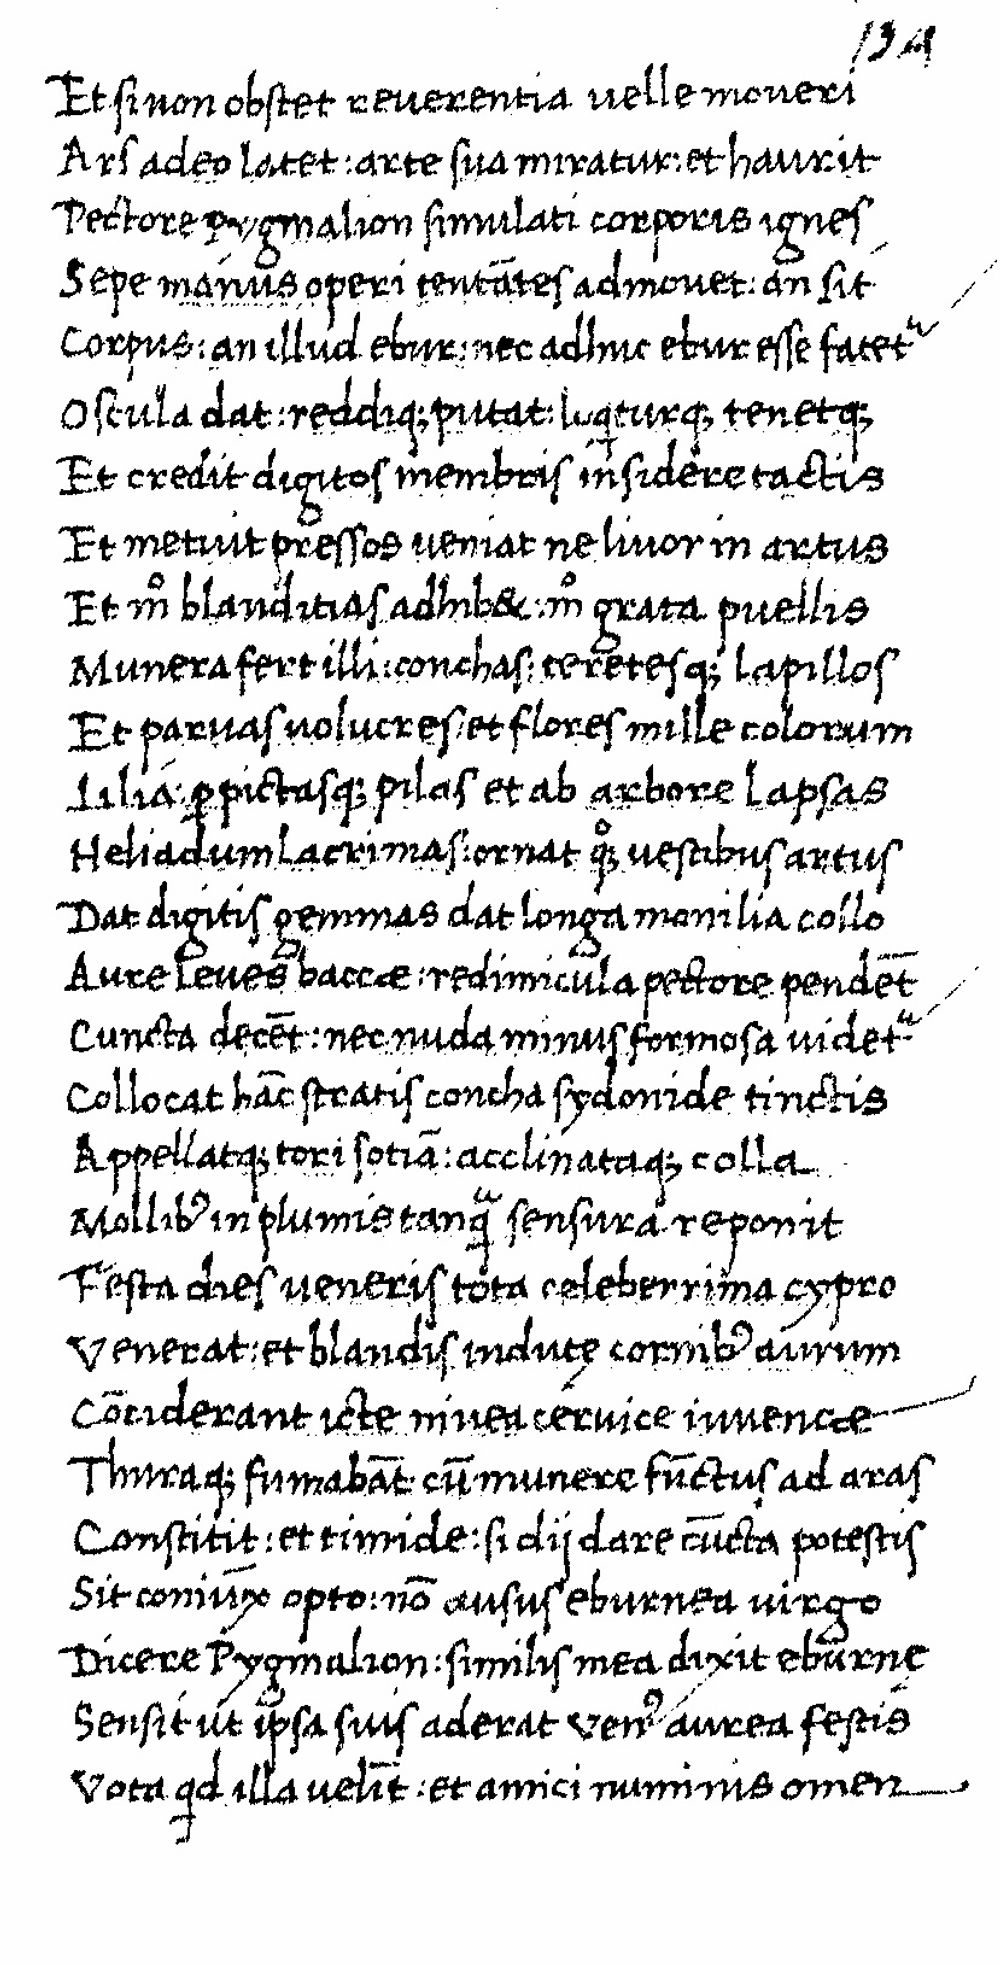 134
Et si non obstet reuerentia uelle moueri
Ars adeo latet : arte sua miratur : et haurit
Pectore pygmalion simulati corporis ignes
Sepe manus operi tentātes admouet : an sit
Corpus : an illud ebur : nec adhuc ebur esse fatetᵘ
Oscula dat : reddiq; putat : loq̇turq; tenetq;
Et credit digitos membris insidere tactis
Et metuit pressos ueniat ne liuor in artus
Et mº blanditias adhib& : mº grata puellis
Munera fert illi : conchas : teretesq; lapillos
Et paruas uolucres : et flores mille colorum
Lilia ꝑpictasq; pilas et ab arbore lapsas
Heliadum lacrimas : ornat qº; uestibus artus
Dat digitis gemmas dat longa monilia collo
Aure leues baccæ : redimicula pectore pendēt
Cuncta decēt : nec nuda minus formosa uidetᵘ
Collocat hāc stratis concha sydonide tinctis
Appellatq; tori sotiā : acclinataq; colla
Mollibꝰ in plumis tanqᵃ sensura reponit
Festa dies ueneris tota celeberrima cypro
Venerat : et blandis inducę cornibꝰ aurum
Cōciderant icte niuea ceruice iuuencæ
Thuraq; fumabāt cū munere fūctus ad aras
Constitit : et timide : si dij dare cūcta potestis
Sit coniūx opto : nō ausus eburnea uirgo
Dicere Pygmalion : similis mea dixit eburnę
Sensit ut ipsa suis aderat venꝰ aurea festis
Vota qd illa uelīt : et amici numinis omen